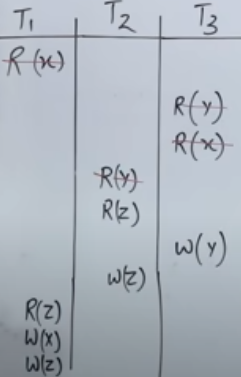 T1 T2 T3
R(x)
R(y)
R(x)
R(y)
R(z)
W(y)
W(z)
R(z)
W(x)
W(z)